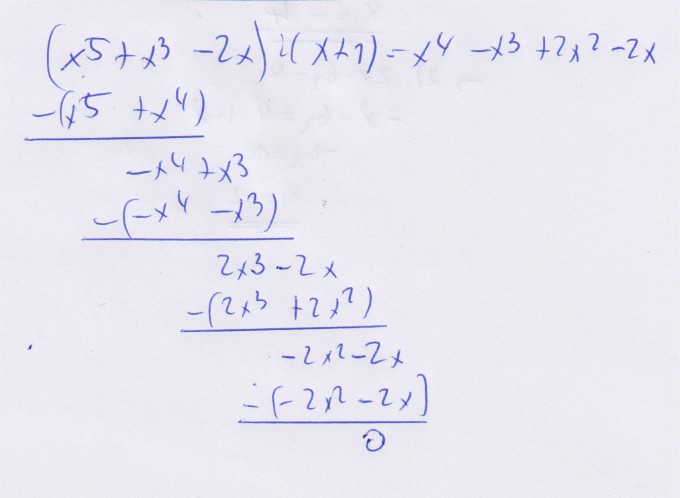 (x5 + x3 - 2x) : (x+1) = x4 - x3 + 2x2 - 2x
-(x5 + x4)
-x4 + x3
-(-x4 - x3)
2x3 - 2x
-(2x3 + 2x2)
-2x2 - 2x
-(-2x2 - 2x)
0